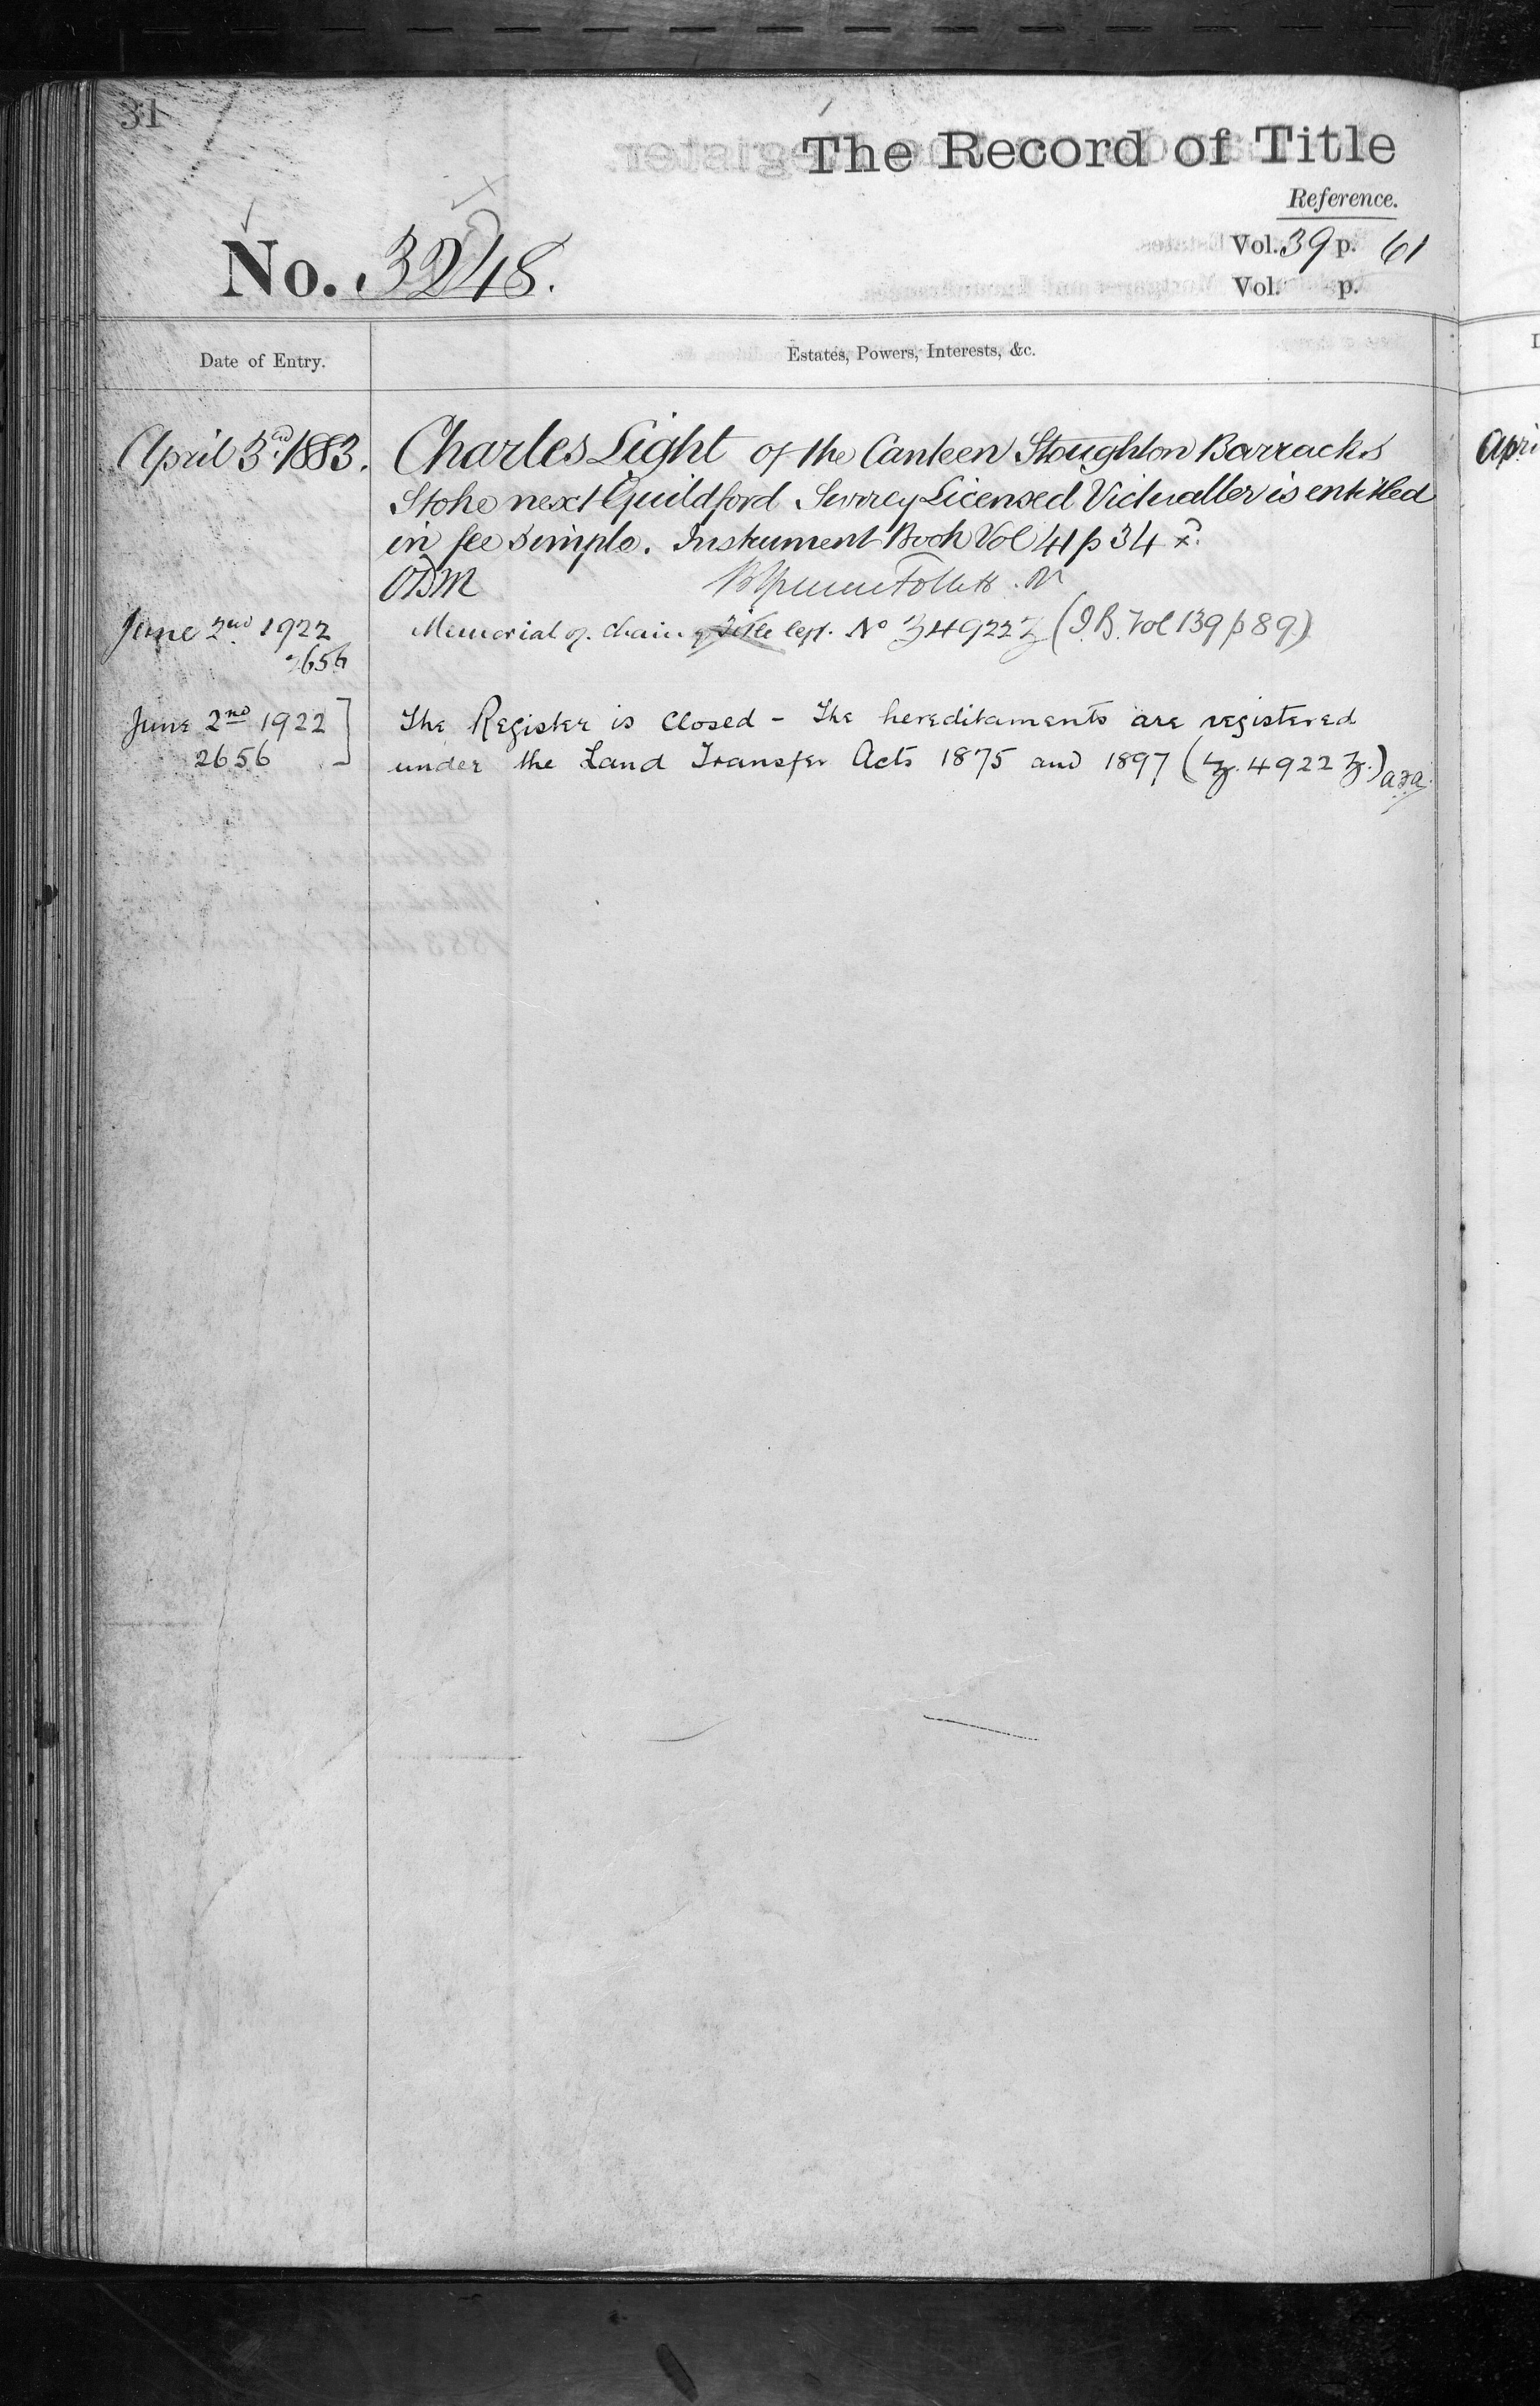 31
The Record of Title
Reference.
Vol. 39 p. 61
No. 3248.
Vol. p.
Date of Entry.
Estates, Powers, Interests, &c.
April 3rd 1883. Charles Light of the Canteen Stoughton Barracks
Stoke next Guildford Surrey Licensed Victualler is entitled
in fee simple. Instrument Book Vol 41 p 34
June 2nd 1922 Memorial of Title Cert. No (I.B. Vol 139 p 89)
2656
June 2nd 1922 The Register is Closed - The hereditaments are registered
2656 under the Land Transfer Acts 1875 and 1897 (
Apri